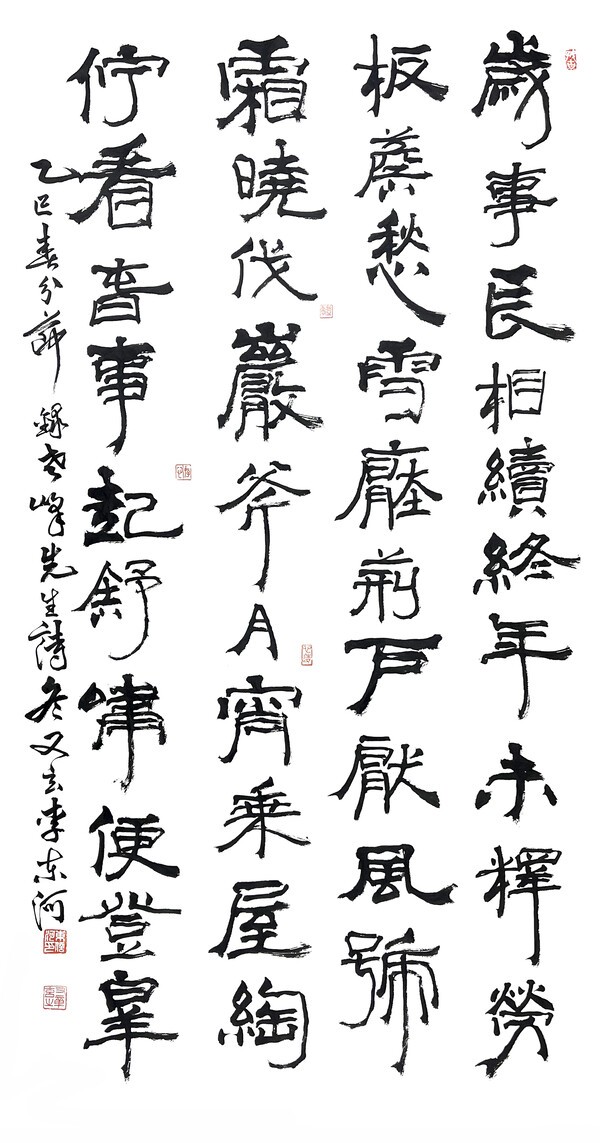 歲事長相續終年未釋勞
板愁雪壓荊戶厭風號
霜曉伐巖斧月宵乘屋綯
佇看春事起舒嘯便登皐
乙巳春分節 錄老峰先生詩 冬又玄李東河